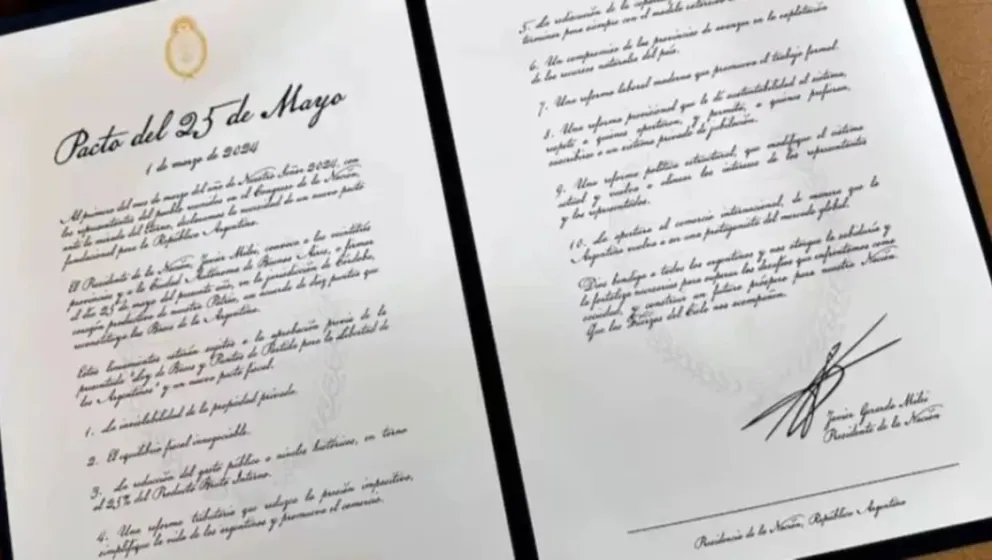 Pacto del 25 de Mayo
1 de marzo de 2024
Al primero del mes de marzo del año de Nuestro Señor 2024, con
los representantes del pueblo reunidos en el Congreso de la Nación,
ante la mirada del Eterno, declaramos la necesidad de un nuevo pacto
fundacional para la República Argentina.
El Presidente de la Nación, Javier Milei, convoca a las veintitrés
provincias y a la Ciudad Autónoma de Buenos Aires, a firmar
el día 25 de mayo del presente año, en la jurisdicción de Córdoba,
corazón productivo de nuestra Patria, un acuerdo de diez puntos que
reconstituya las Bases de la Argentina.
Estos lineamientos estarán sujetos a la aprobación previa de la
presentada "Ley de Bases y Puntos de Partida para la Libertad de
los Argentinos" y un nuevo pacto fiscal.
1. La inviolabilidad de la propiedad privada.
2. El equilibrio fiscal innegociable.
3. La reducción del gasto público a niveles históricos, en torno
al 25% del Producto Bruto Interno.
4. Una reforma tributaria que reduzca la presión impositiva,
simplifique la vida de los argentinos y promueva el comercio.
5. La rediscusión de la
termine para siempre con el modelo extorsivo
6. Un compromiso de las provincias de avanzar en la explotación
de los recursos naturales del país.
7. Una reforma laboral moderna que promueva el trabajo formal.
8. Una reforma previsional que le dé sustentabilidad al sistema,
respete a quienes aportaron, y permita, a quienes prefieran,
suscribirse a un sistema privado de jubilación.
9. Una reforma política estructural, que modifique el sistema
actual y vuelva a alinear los intereses de los representantes
y los representados.
10. La apertura al comercio internacional, de manera que la
Argentina vuelva a ser una protagonista del mercado global.
Dios bendiga a todos los argentinos y nos otorgue la sabiduría y
la fortaleza necesarias para superar los desafíos que enfrentamos como
sociedad, y construir un futuro próspero para nuestra Nación.
Que las Fuerzas del Cielo nos acompañen.
Javier Gerardo Milei
Presidente de la Nación
Presidencia de la Nación, República Argentina